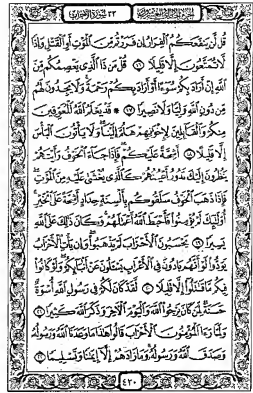 قُل لَّن يَنفَعَكُمُ ٱلْفِرَارُ إِن فَرَرْتُم مِّنَ ٱلْمَوْتِ أَوِ ٱلْقَتْلِ وَإِذًا
لَّا تُمَتَّعُونَ إِلَّا قَلِيلًا ١٦ قُلْ مَن ذَا ٱلَّذِى يَعْصِمُكُم مِّنَ
ٱللَّهِ إِنْ أَرَادَ بِكُمْ سُوٓءًا أَوْ أَرَادَ بِكُمْ رَحْمَةً وَلَا يَجِدُونَ لَهُم
مِّن دُونِ ٱللَّهِ وَلِيًّا وَلَا نَصِيرًا ١٧ قَدْ يَعْلَمُ ٱللَّهُ ٱلْمُعَوِّقِينَ
مِنكُمْ وَٱلْقَآئِلِينَ لِإِخْوَٰنِهِمْ هَلُمَّ إِلَيْنَا وَلَا يَأْتُونَ ٱلْبَأْسَ
إِلَّا قَلِيلًا ١٨ أَشِحَّةً عَلَيْكُمْ فَإِذَا جَآءَ ٱلْخَوْفُ رَأَيْتَهُمْ
يَنظُرُونَ إِلَيْكَ تَدُورُ أَعْيُنُهُمْ كَٱلَّذِى يُغْشَىٰ عَلَيْهِ مِنَ ٱلْمَوْتِ
فَإِذَا ذَهَبَ ٱلْخَوْفُ سَلَقُوكُم بِأَلْسِنَةٍ حِدَادٍ أَشِحَّةً عَلَى ٱلْخَيْرِ
أُو۟لَٰٓئِكَ لَمْ يُؤْمِنُوا۟ فَأَحْبَطَ ٱللَّهُ أَعْمَٰلَهُمْ وَكَانَ ذَٰلِكَ عَلَى ٱللَّهِ
يَسِيرًا ١٩ يَحْسَبُونَ ٱلْأَحْزَابَ لَمْ يَذْهَبُوا۟ وَإِن يَأْتِ ٱلْأَحْزَابُ
يَوَدُّوا۟ لَوْ أَنَّهُم بَادُونَ فِى ٱلْأَعْرَابِ يَسْـَٔلُونَ عَنْ أَنۢبَآئِكُمْ وَلَوْ كَانُوا۟
فِيكُم مَّا قَٰتَلُوٓا۟ إِلَّا قَلِيلًا ٢٠ لَّقَدْ كَانَ لَكُمْ فِى رَسُولِ ٱللَّهِ أُسْوَةٌ
حَسَنَةٌ لِّمَن كَانَ يَرْجُوا۟ ٱللَّهَ وَٱلْيَوْمَ ٱلْـَٔاخِرَ وَذَكَرَ ٱللَّهَ كَثِيرًا ٢١
وَلَمَّا رَءَا ٱلْمُؤْمِنُونَ ٱلْأَحْزَابَ قَالُوا۟ هَٰذَا مَا وَعَدَنَا ٱللَّهُ وَرَسُولُهُۥ
وَصَدَقَ ٱللَّهُ وَرَسُولُهُۥ وَمَا زَادَهُمْ إِلَّآ إِيمَٰنًا وَتَسْلِيمًا ٢٢
٤٢٠